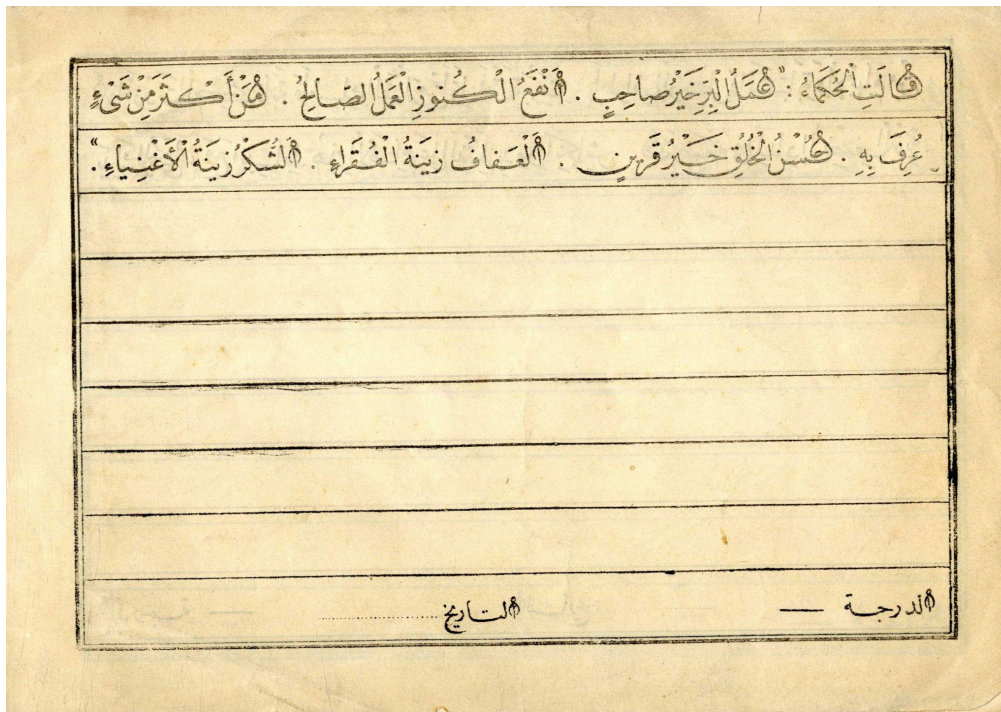 قَالَتِ الْحُكَمَاءُ : " عَمَلُ الْبِرِّ خَيْرُ صَاحِبٍ . أَنْفَعُ الْكُنُوزِ الْعَمَلُ الصَّالِحُ . مَنْ أَكْثَرَ مِنْ شَيْءٍ
عُرِفَ بِهِ . حُسْنُ الْخُلُقِ خَيْرُ قَرِينٍ . أَلْعَفَافُ زِينَةُ الْفُقَرَاءِ . أَلشُّكْرُ زِينَةُ الْأَغْنِيَاءِ . "
الدرجة — التاريخ ....................